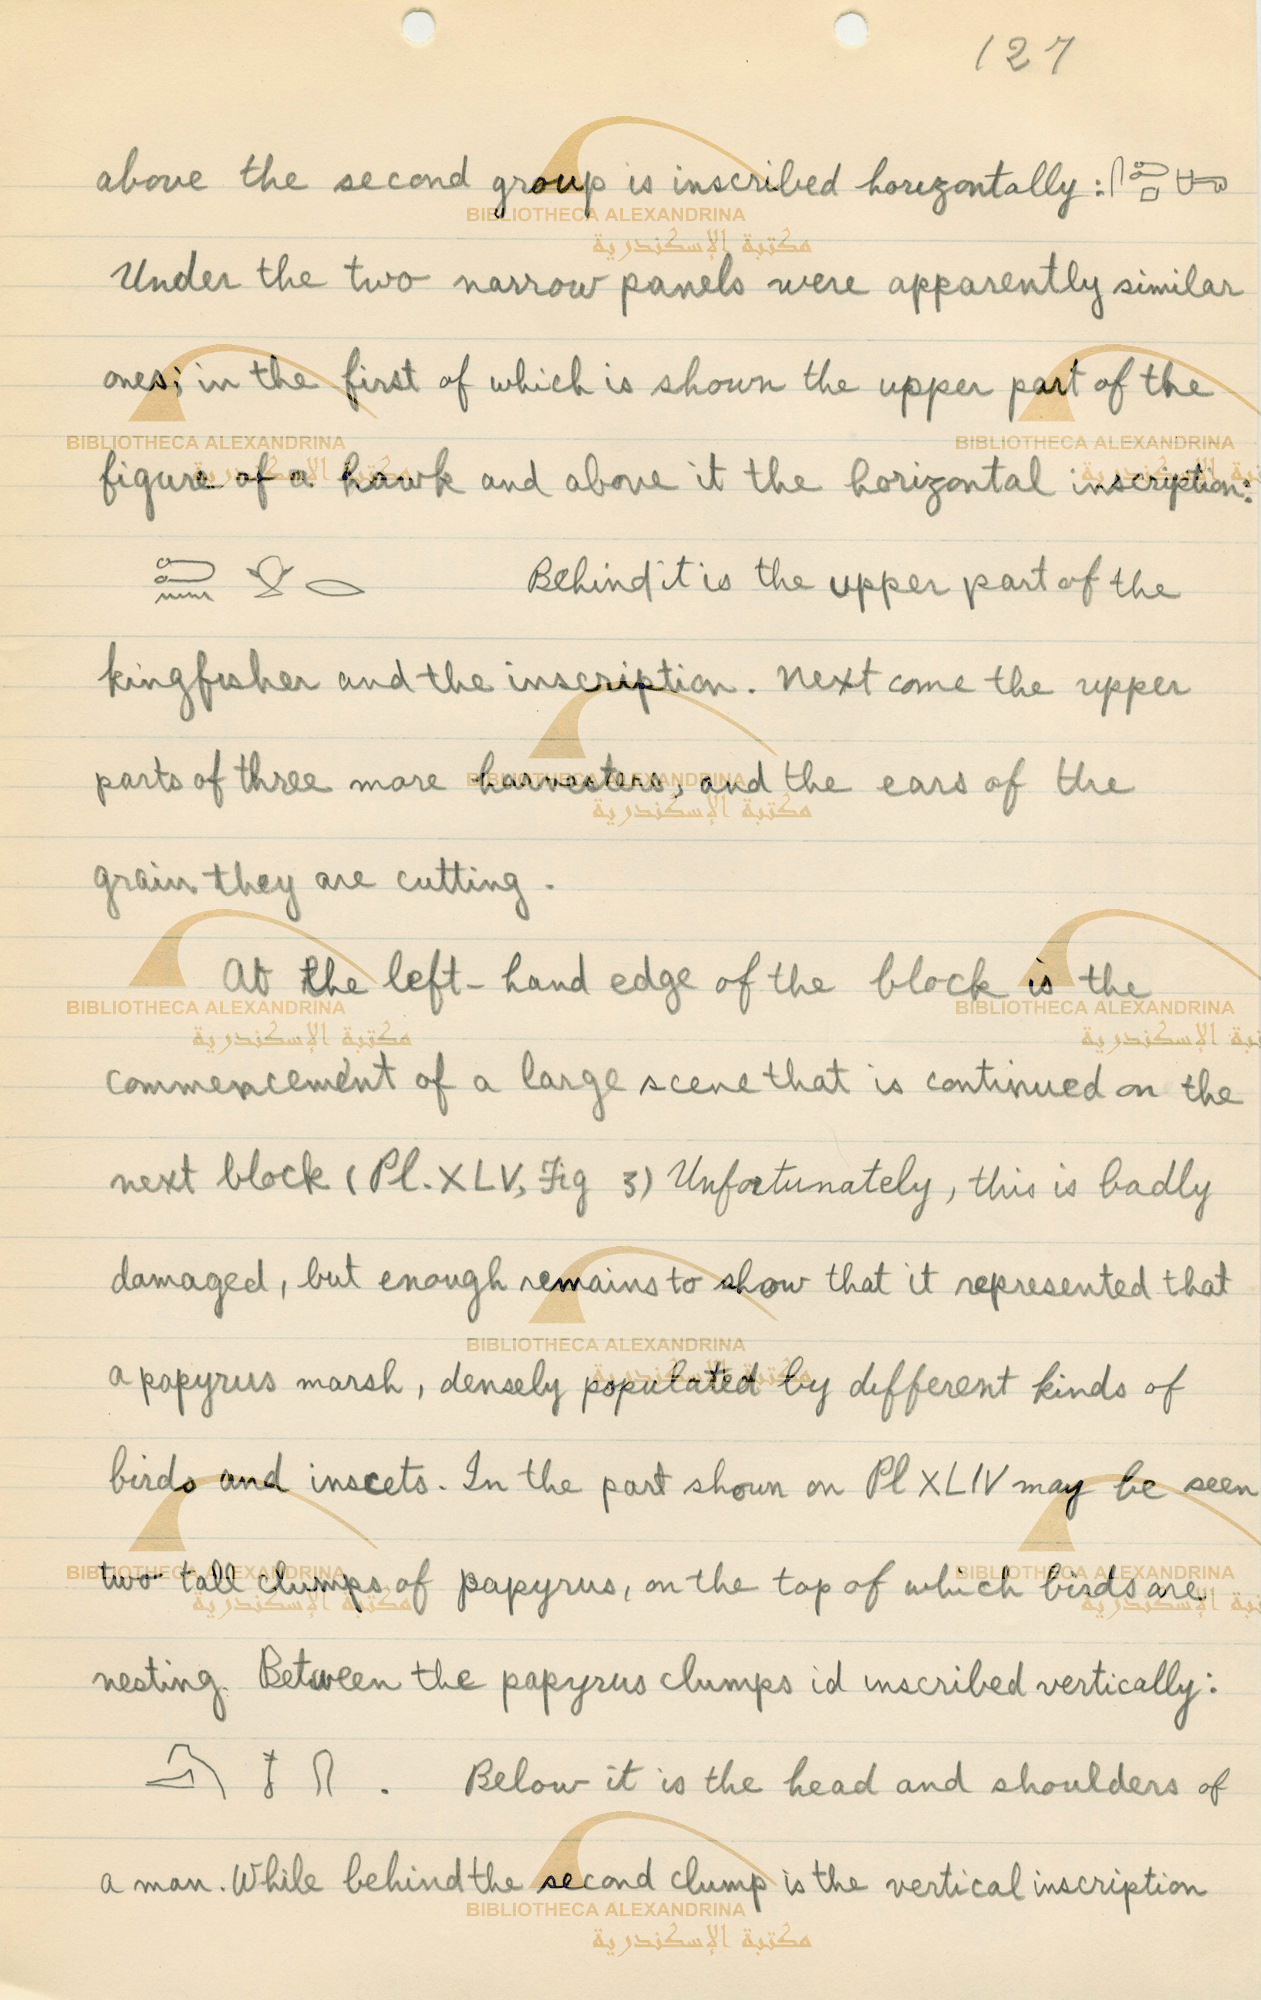 127
above the second group is inscribed horizontally:
Under the two narrow panels were apparently similar
ones; in the first of which is shown the upper part of the
figure of a hawk and above it the horizontal inscription:
Behind it is the upper part of the
kingfisher and the inscription. Next come the upper
parts of three more harvesters, and the ears of the
grain they are cutting.
At the left-hand edge of the block is the
commencement of a large scene that is continued on the
next block (Pl. XLV, Fig 3) Unfortunately, this is badly
damaged, but enough remains to show that it represented that
a papyrus marsh, densely populated by different kinds of
birds and inscets. In the part shown on Pl XLIV may be seen
two tall clumps of papyrus, on the top of which birds are
nesting. Between the papyrus clumps id inscribed vertically:
. Below it is the head and shoulders of
a man. While behind the second clump is the vertical inscription
BIBLIOTHECA ALEXANDRINA
مكتبة الإسكندرية